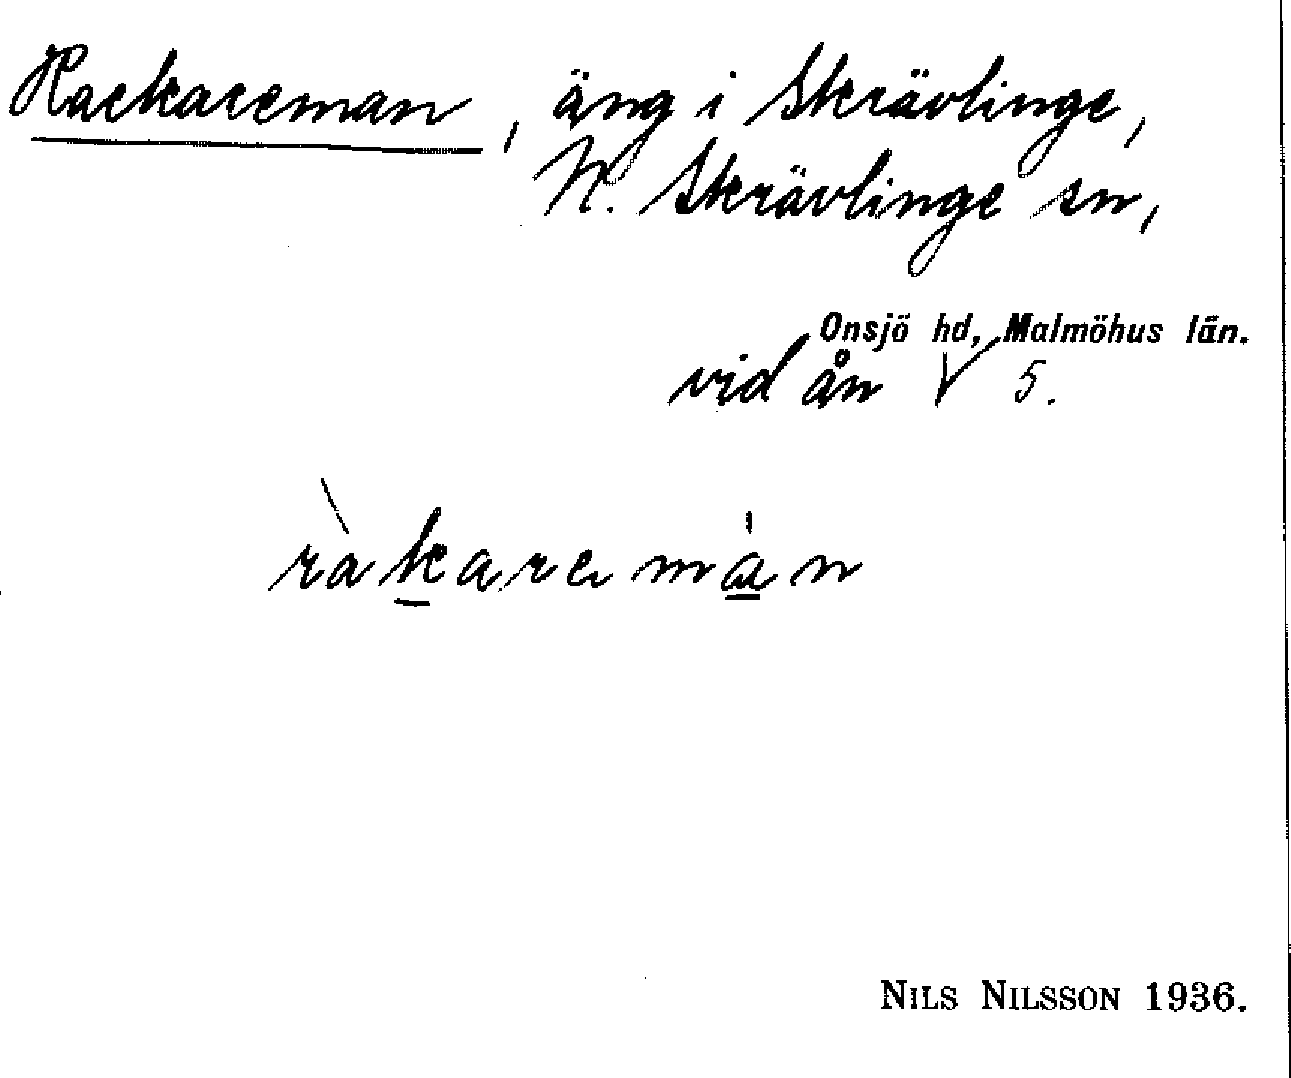 Rackareman, äng i Skrävlinge,
N. Skrävlinge sn,
Onsjö hd, Malmöhus län.
vid ån V 5.
ràkaremán
NILS NILSSON 1936.